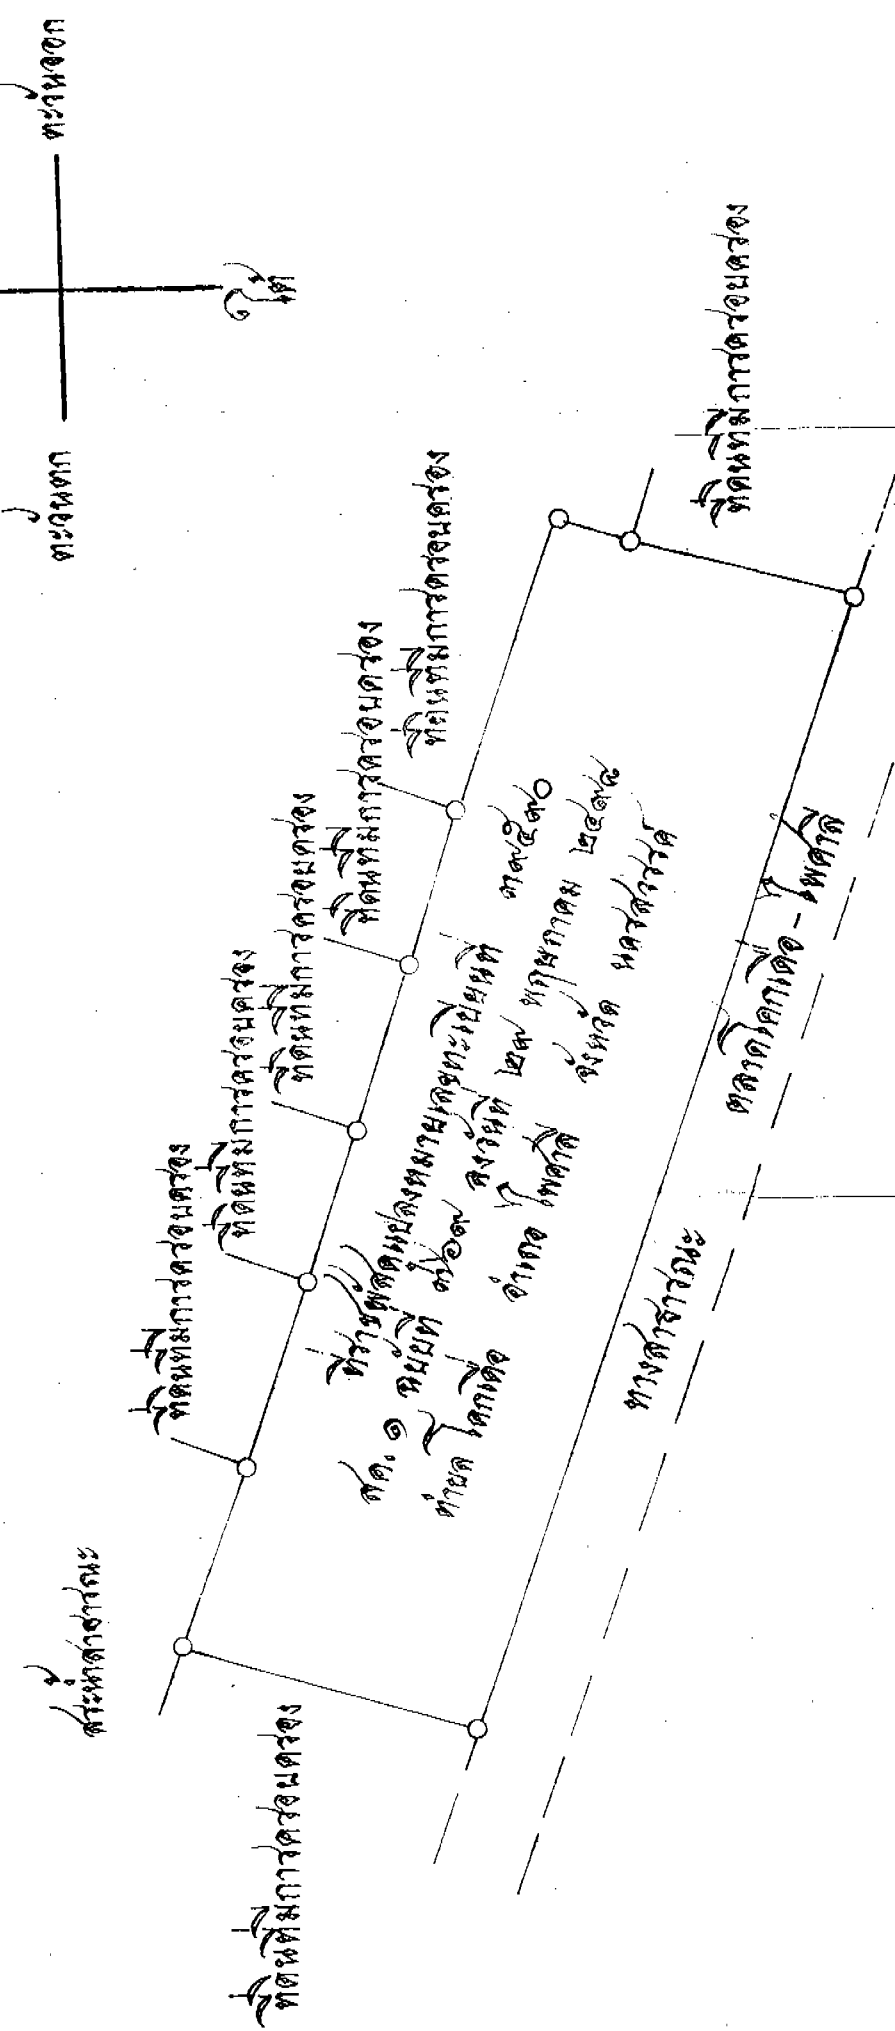 ตะวันออก
ตะวันตก
ใต้
สระน้ำสาธารณะ
ที่ดินที่มีการครอบครอง
ที่ดินที่มีการครอบครอง
ที่ดินที่มีการครอบครอง
ที่ดินที่มีการครอบครอง
ที่ดินที่มีการครอบครอง
ที่ดินที่มีการครอบครอง
ที่ดินที่มีการครอบครอง
ที่ราชพัสดุแปลงหมายเลขทะเบียนที่
สค. ๑ ฉบับที่ ลงวันที่ ๒๗ พฤษภาคม ๒๔๙๘
ตำบล โคกเดื่อ อำเภอ ไพศาลี จังหวัด นครสวรรค์
ทางสาธารณะ
ตลาดโคกเดื่อ - ไพศาลี